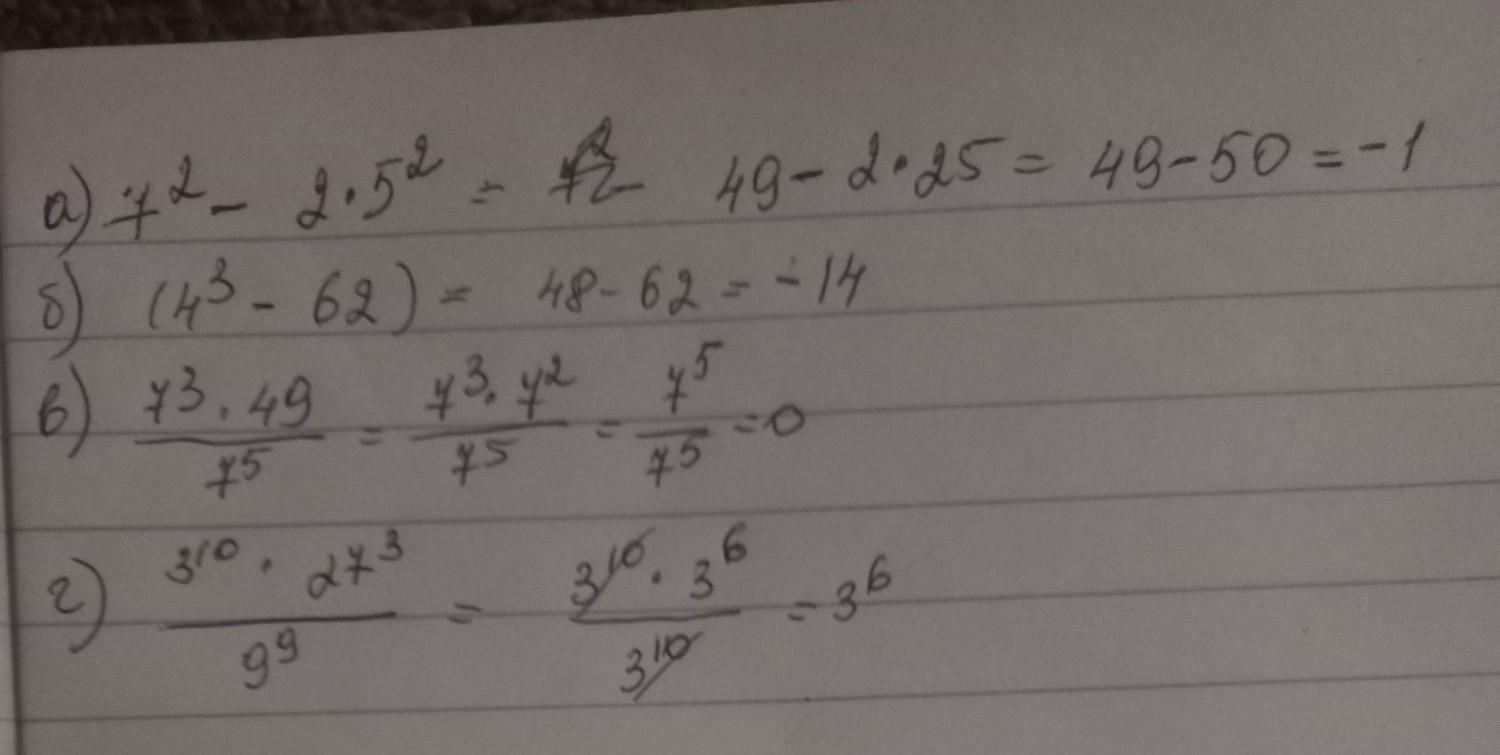 а) 7² - 2·5² = 49 - 2·25 = 49 - 50 = -1
б) (4³ - 62) = 48 - 62 = -14
в) 7³·49/7⁵ = 7³·7²/7⁵ = 7⁵/7⁵ = 0
г) 3¹⁰·27³/9⁹ = 3¹⁰·3⁶/3¹⁰ = 3⁶